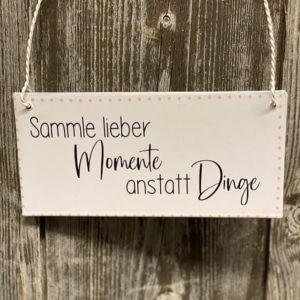 Sammle lieber
Momente
anstatt Dinge